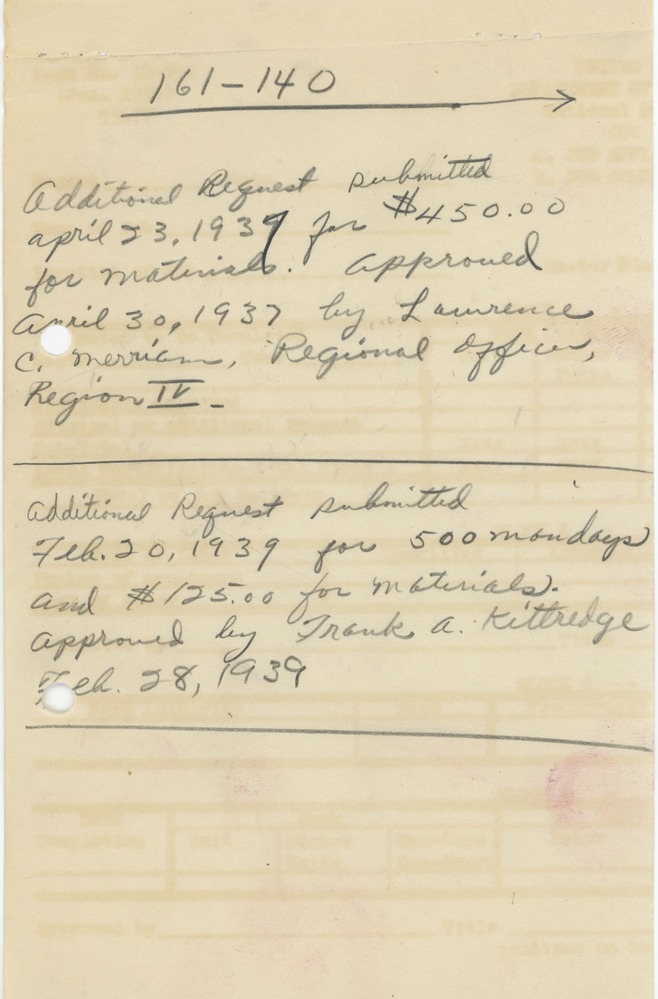 161-140
Additional Request submitted
April 23, 1937 for $450.00
for materials. Approved
April 30, 1937 by Lawrence
C. Merriam, Regional Officer,
Region IV -
Additional Request submitted
Feb. 20, 1939 for 500 mandays
and $125.00 for materials.
Approved by Frank A. Kittredge
Feb. 28, 1939